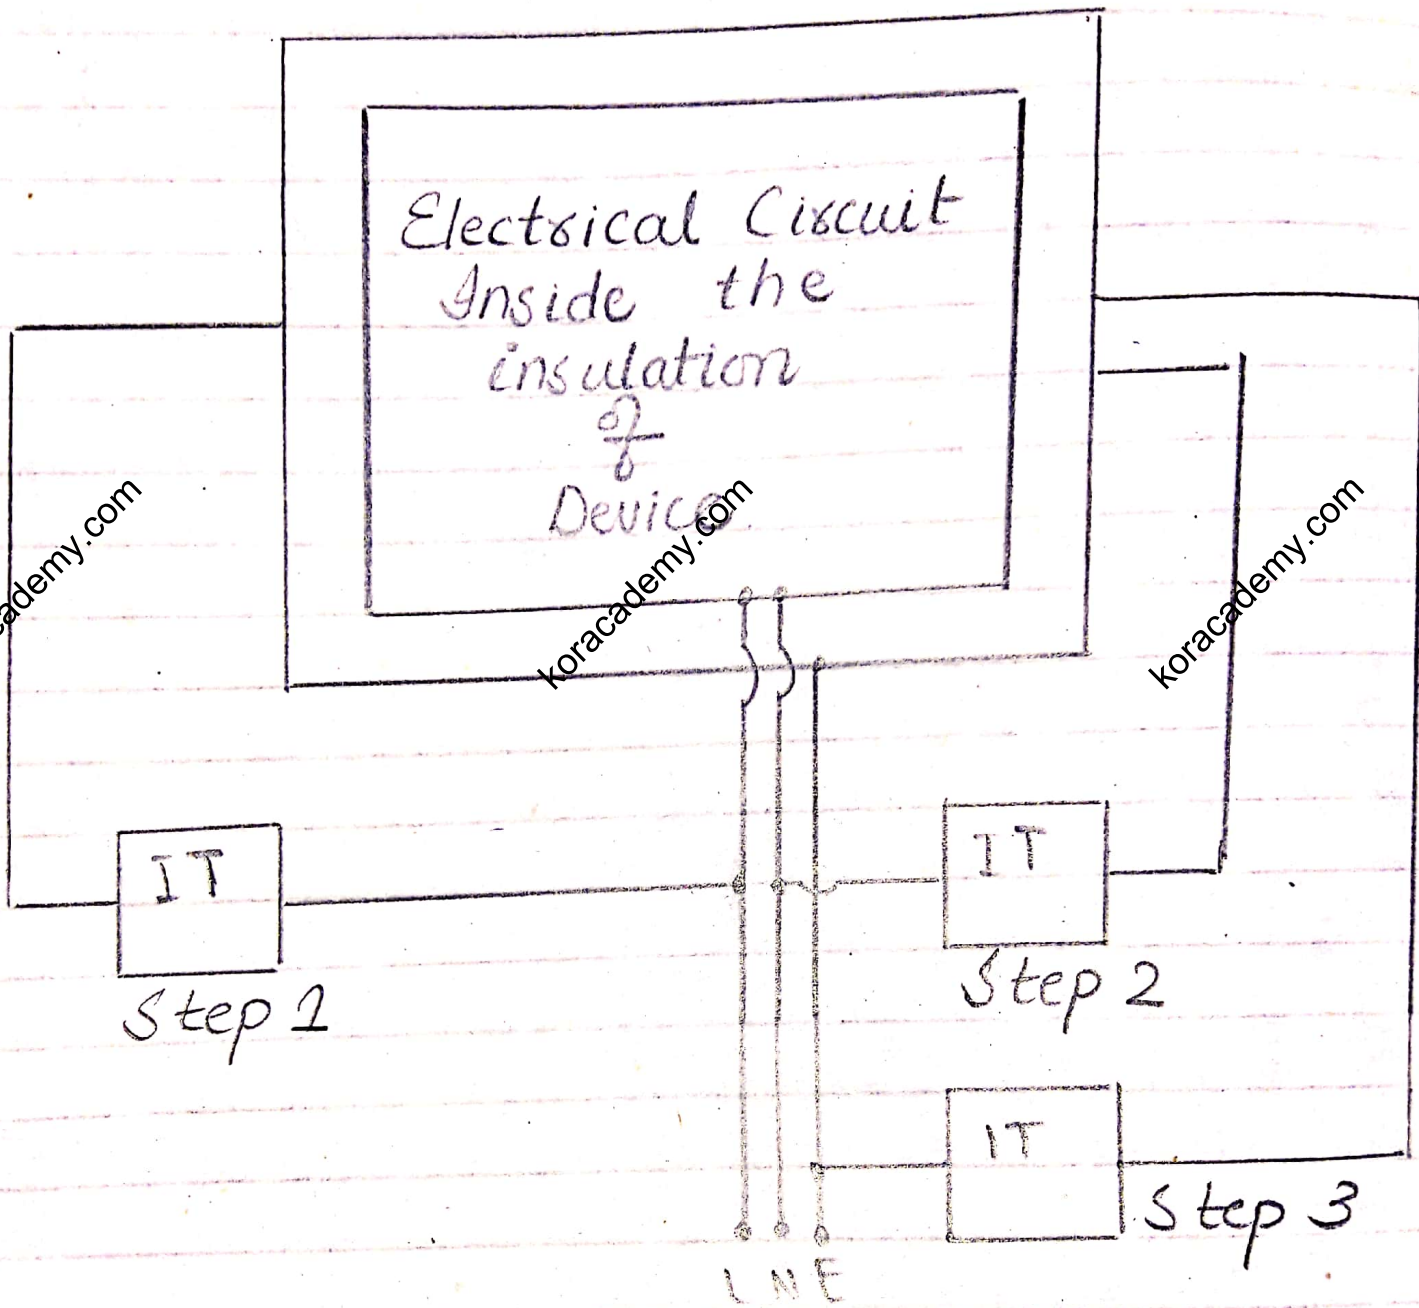 Electrical Circuit
Inside the
insulation
of
Device
koracademy.com
koracademy.com
cademy.com
IT
Step 1
IT
Step 2
IT
Step 3
L N E